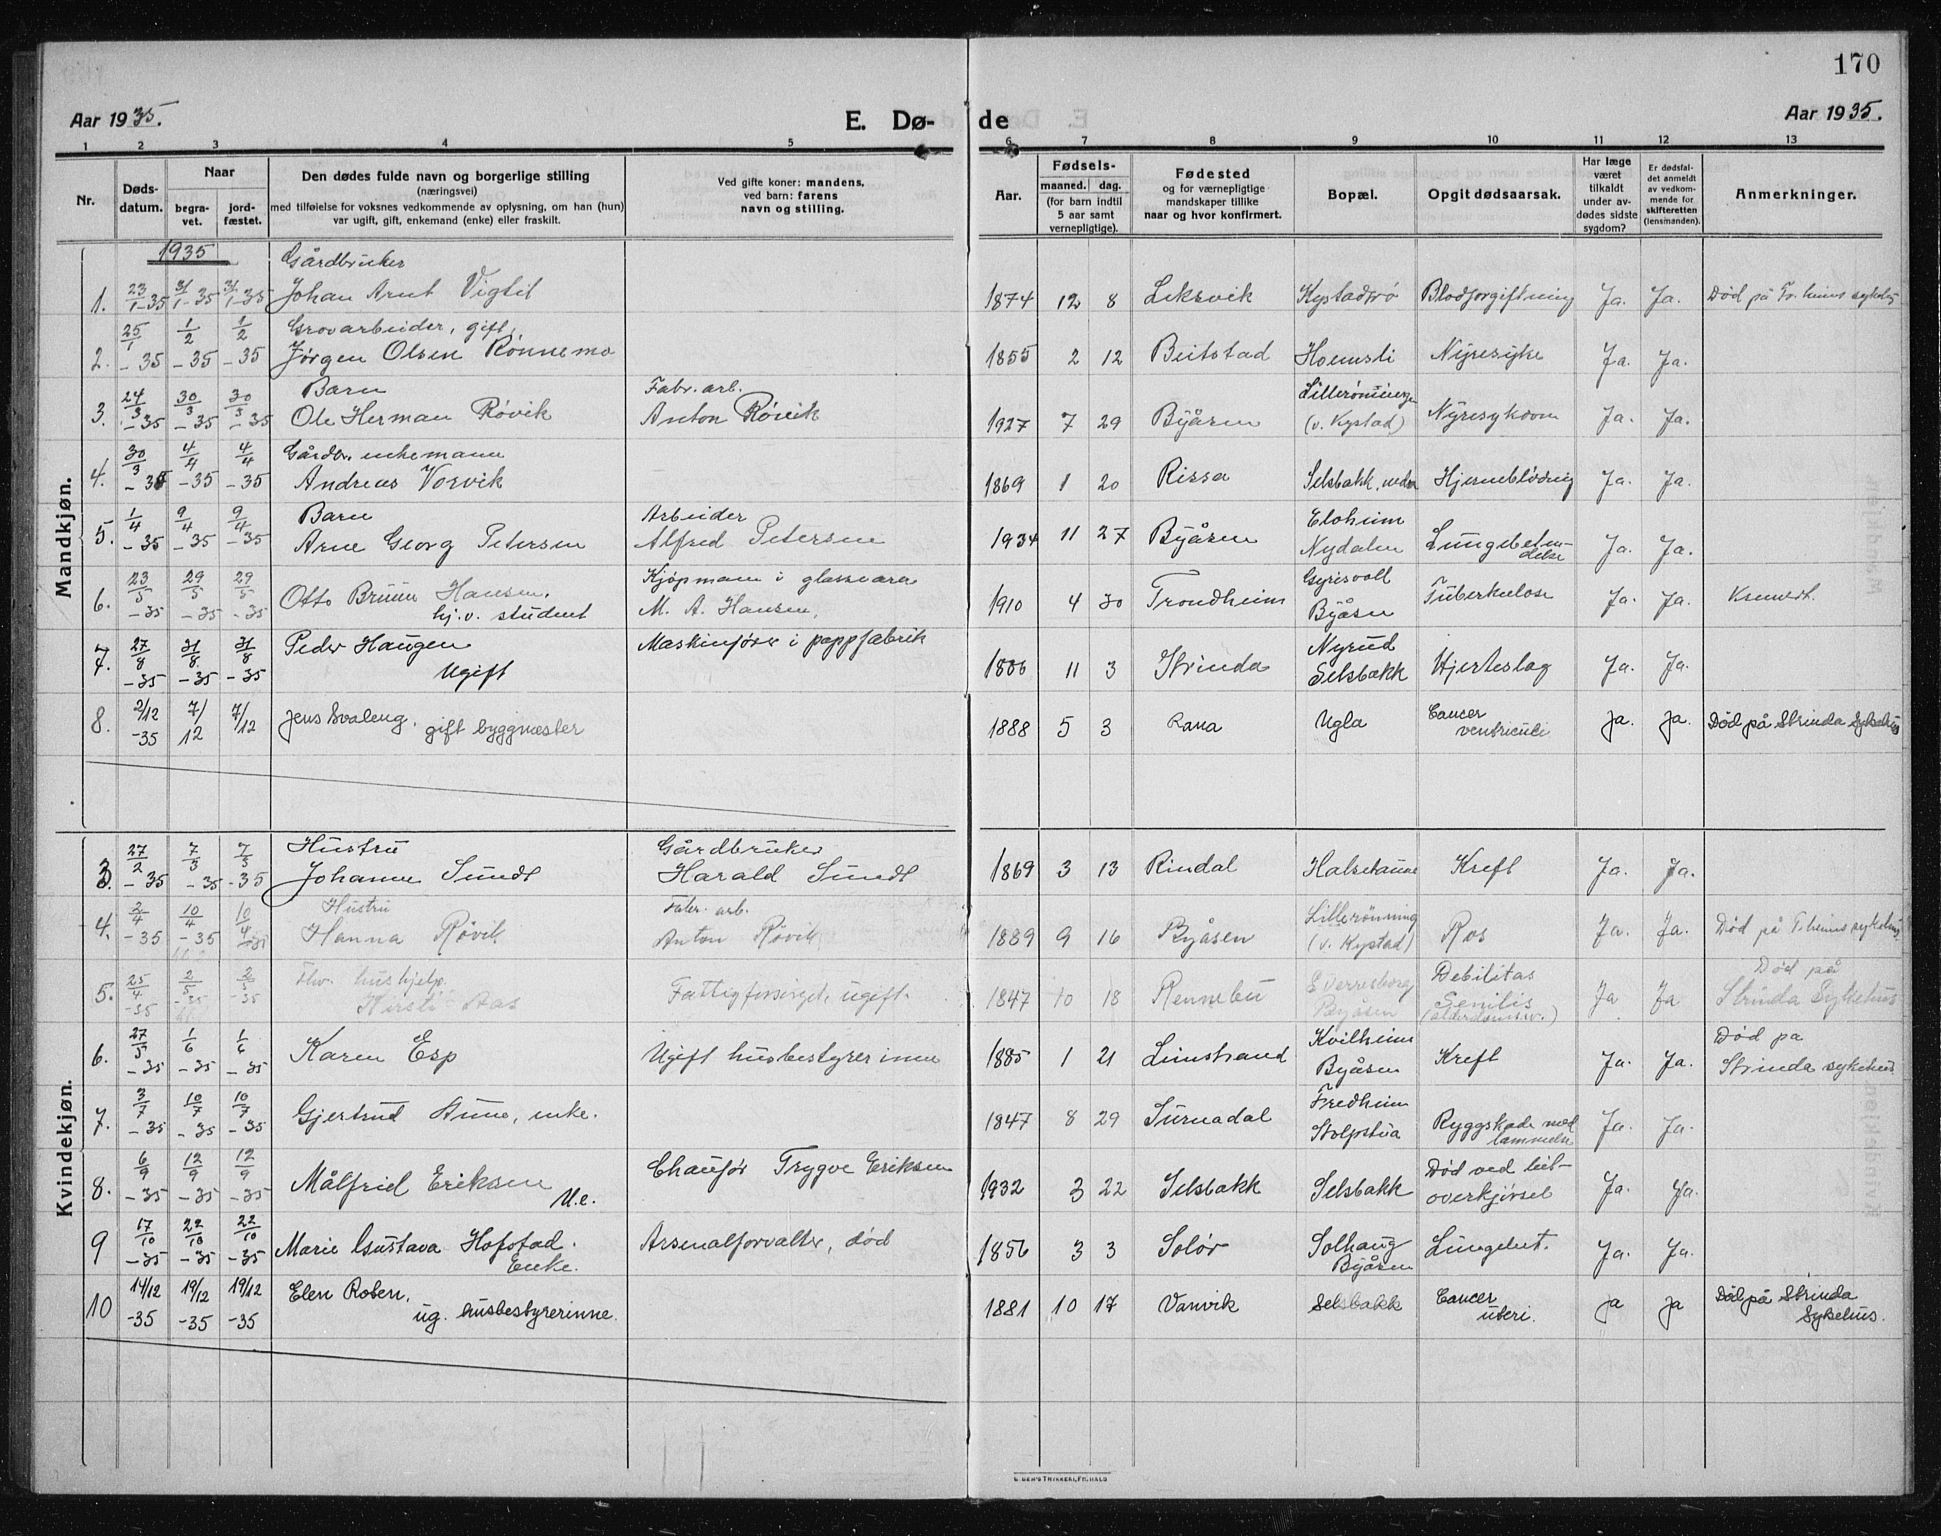 170
Aar 1935.
E. Dø- de
Aar 1935.
1 2 3 4 5 6 7 8 9 10 11 12 13
Nr.
Døds-
datum.
Naar
begra-
vet.
jord-
fæstet.
Den dødes fulde navn og borgerlige stilling
(næringsvei)
med tilføielse for voksnes vedkommende av oplysning, om han (hun)
var ugift, gift, enkemand (enke) eller fraskilt.
Ved gifte koner: mandens,
ved barn: farens
navn og stilling.
Aar.
Fødsels-
maaned. dag.
(for barn indtil
5 aar samt
vernepligtige).
Fødested
og for værnepligtige
mandskaper tillike
naar og hvor konfirmert.
Bopæl.
Opgit dødsaarsak.
Har læge
været
tilkaldt
under av-
dødes sidste
sygdom?
Er dødsfal-
det anmeldt
av vedkom-
mende for
skifteretten
(lensmanden).
Anmerkninger.
Mandkjøn.
1935
Gårdbruker
1. 23/1-35 31/1-35 31/1-35 Johan Arnt Vigtil 1874 12 8 Leksvik Kystadrø Blodforgiftning Ja. Ja. Død på Tr.heims sykehus
Grovarbeider, gift.
2. 25/1-35 1/2-35 1/2-35 Jørgen Olsen Rønnemo 1855 2 12 Beitstad Hoemsli Nyresyke Ja. Ja.
Barn Fabr. arb. Lillerønningen
3. 24/3-35 30/3-35 30/3-35 Ole Herman Røvik Anton Røvik 1927 7 29 Byåsen (v. Kystad) Nyresykdom Ja. Ja.
Gårdbr. enkemann
4. 30/3-35 4/4-35 4/4-35 Andreas Vorvik 1869 1 20 Rissa Selsbakk, nedre Hjerneblødning Ja. Ja.
Barn Arbeider Eloheim
5. 1/4-35 9/4-35 9/4-35 Arne Georg Petersen Alfred Petersen 1934 11 27 Byåsen Nydalen Lungebeten-
delse Ja. Ja.
Kjøpmann i glassvarer Gyrisvoll
6. 23/5-35 29/5-35 29/5-35 Otto Bruun Hansen, M. A. Hansen, 1910 4 30 Trondheim Byåsen Tuberkulose Ja. Ja. Kremert.
hj.v. student
7. 27/8-35 31/8-35 31/8-35 Peder Haugen Maskinfører i pappfabrik 1886 11 3 Strinda Nyrud
Ugift Selsbakk Hjerteslag Ja. Ja.
8. 2/12-35 7/12 7/12 Jens Svaleng. gift byggmester 1888 5 3 Rana Ugla Cancer
ventriculi Ja. Ja. Død på Strinda Sykehus
Kvindekjøn.
Hustru Gårdbruker
3. 27/2-35 7/3-35 7/3-35 Johanne Sundt Harald Sundt 1869 3 13 Rindal Halsetaune Kreft Ja. Ja.
Hustru Fabr. arb. Lillerønning
4. 2/4-35 10/4-35 10/4-35 Hanna Røvik Anton Røvik 1889 9 16 Byåsen (v. Kystad) Ros Ja. Ja. Død på T.heims sykehus
Fhv. hushjelp Debilitas Død på
5. 25/4-35 2/5-35 2/5-35 Kirsti Aas Fattigforsørget, ugift. 1847 10 18 Rennebu Byåsen Senilis Ja Ja Strinda Sykehus
(alderdomssv.)
Kvilheim Død på
6. 27/5-35 1/6-35 1/6-35 Karen Esp Ugift husbestyrerinne 1885 1 21 Lenstrand Byåsen Kreft Ja. Ja. Strinda sykehus
Fredheim
7. 3/7-35 10/7-35 10/7-35 Gjertrud Aune, enke. 1847 8 29 Surnadal Stolpstua Ryggskade med
lammelse Ja. Ja.
8. 6/9-35 12/9-35 12/9-35 Målfrid Eriksen Chaufør Trygve Eriksen 1932 3 22 Selsbakk Selsbakk Død ved bil-
U.e. overkjørsel Ja. Ja.
9 17/10-35 22/10-35 22/10-35 Marie Gustava Hofstad. Arsenalforvalter, død 1856 3 3 Solør Solhaug Lungebet. Ja. Ja.
Enke. Byåsen
10 14/12-35 19/12-35 19/12-35 Elen Roben, 1881 10 17 Vanvik Selsbakk Cancer ja ja Død på Strinda
ug. husbestyrerinne. uteri. Sykehus.